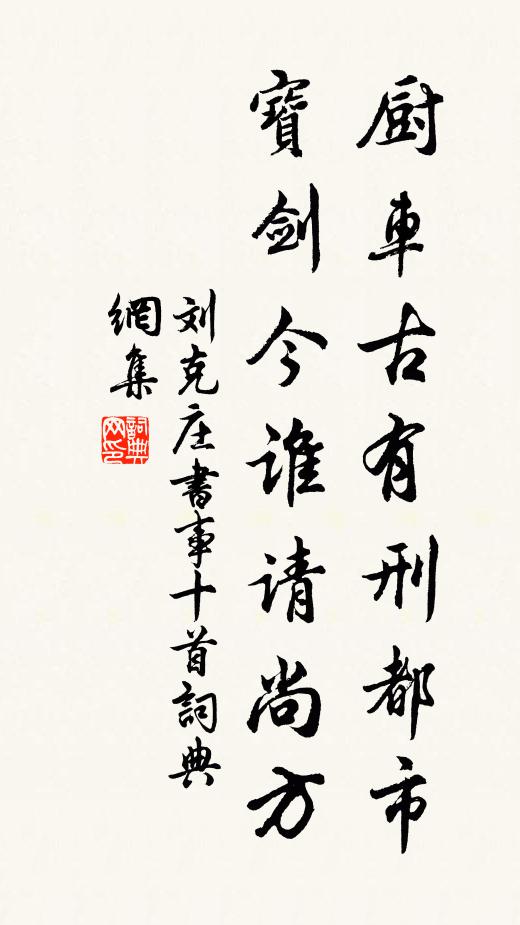 厨車古有刑都市
寶劍今誰请尚方
刘克庄書事十首詞典
網集
詞典
网印